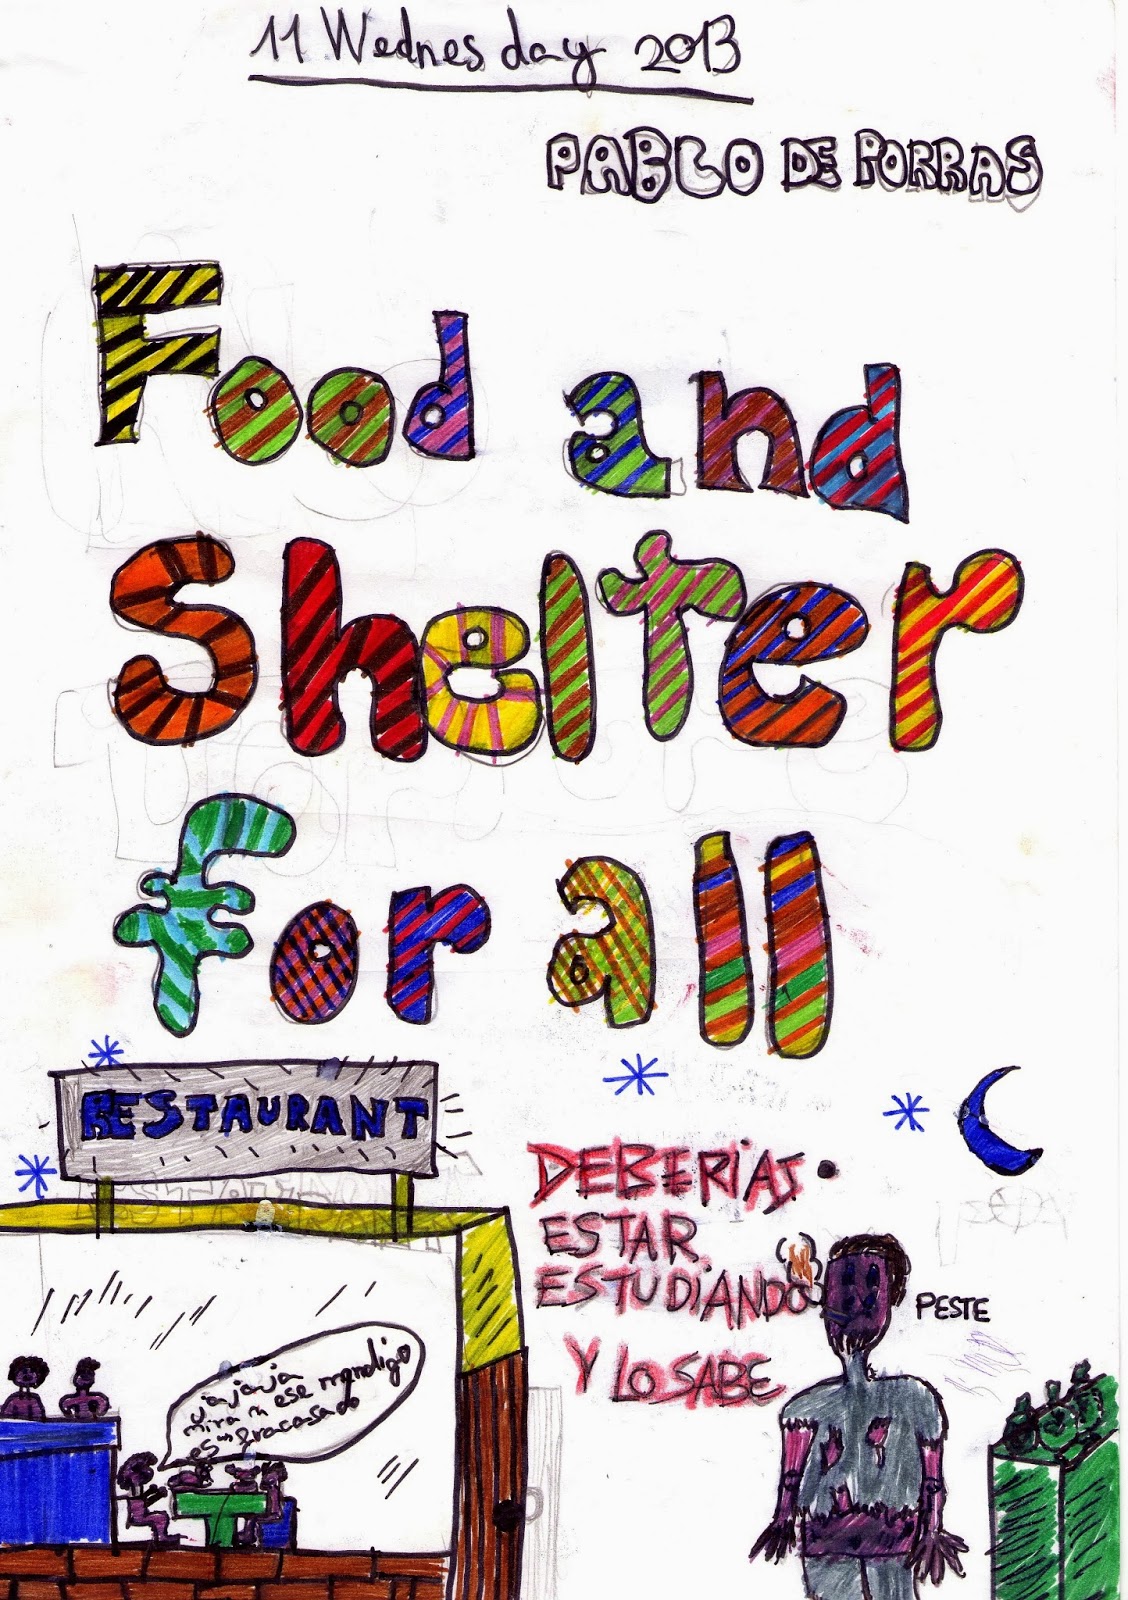 11 Wednesday 2013
PABLO DE PORRAS
Food and
Shelter
for all
RESTAURANT
DEBERIAS
ESTAR
ESTUDIANDO
Y LO SABE
PESTE
jajaja
mira ese mendigo
es un fracasado